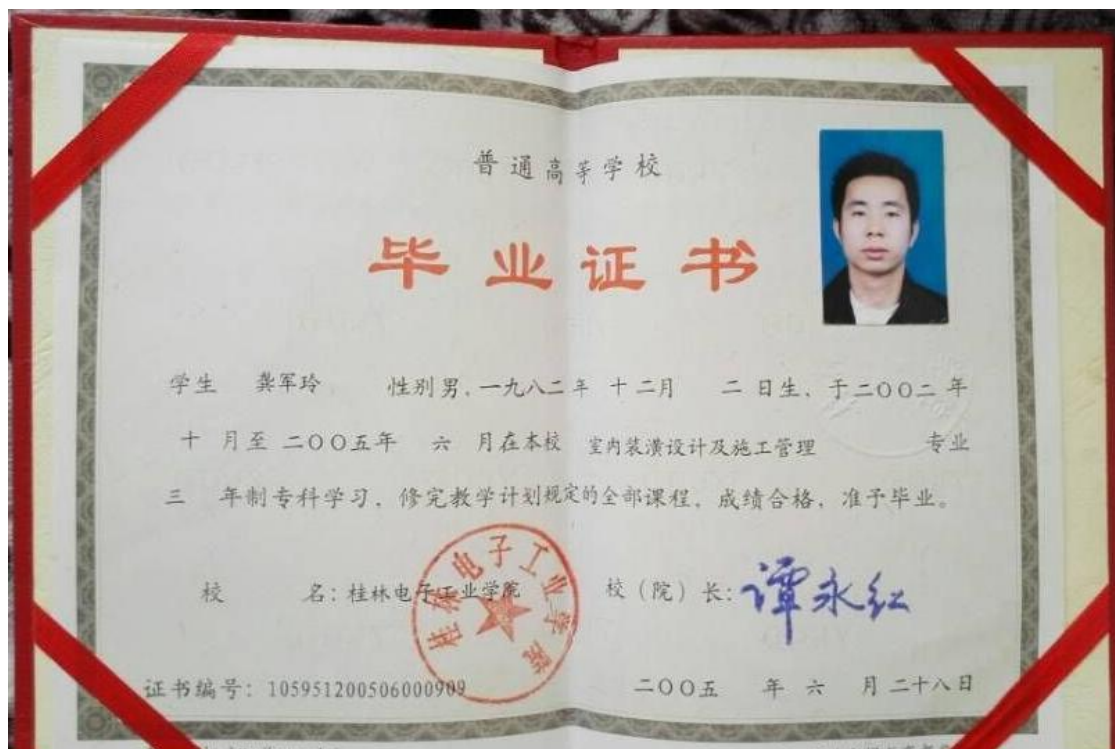 普通高等学校
毕业证书
学生 龚军玲 性别男，一九八二年 十二月 二日生、于二〇〇二年
十 月至 二〇〇五年 六 月在本校 室内装潢设计及施工管理 专业
三 年制专科学习，修完教学计划规定的全部课程，成绩合格，准予毕业。
校 名：桂林电子工业学院 校（院）长：谭永红
桂林电子工业学院
证书编号：105951200506000909 二〇〇五 年 六 月 二十八日